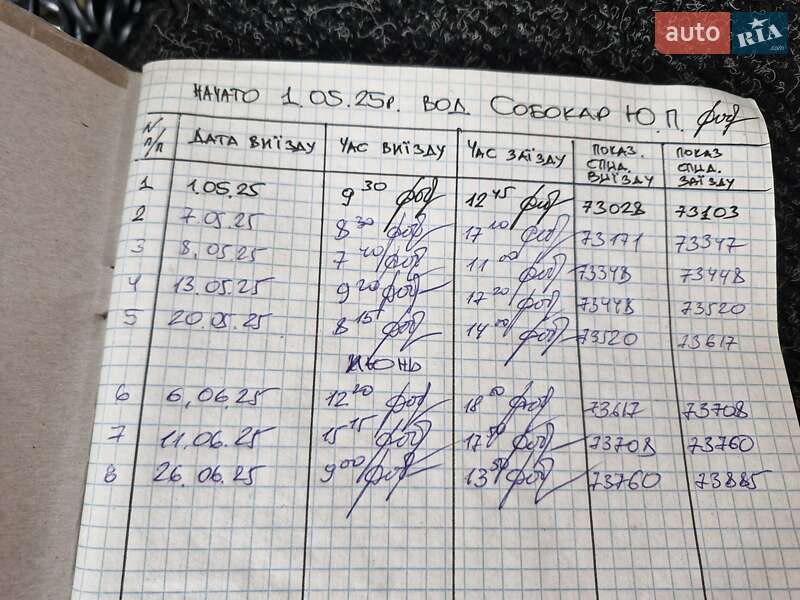 auto RIA .com
НАЧАТО 1.05.25р. ВОД. СОБОКАР Ю.П.
N п/п ДАТА ВИЇЗДУ ЧАС ВИЇЗДУ ЧАС ЗАЇЗДУ ПОКАЗ. СПИД. ВИЇЗДУ ПОКАЗ СПИД. ЗАЇЗДУ
1 1.05.25 9 30 12 45 73028 73103
2 7.05.25 8 30 17 10 73171 73347
3 8.05.25 7 40 11 00 73348 73448
4 13.05.25 9 20 17 20 73448 73520
5 20.05.25 8 15 14 00 73520 73617
ИЮНЬ
6 6.06.25 12 20 18 73617 73708
7 11.06.25 15 15 17 73708 73760
8 26.06.25 9 00 13 50 73760 73885